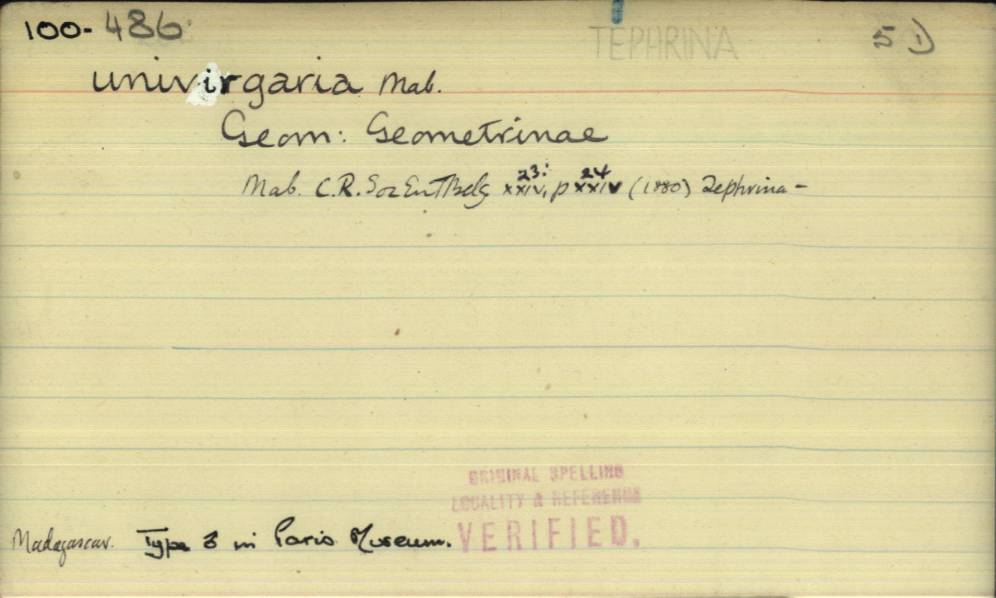 100-486 TEPHRINA 5 1)
univirgaria Mab.
Geom: Geometrinae
23. 24
Mab. C.R. Soc Ent Belg xxiv, p xxiv (1880) Tephrina -
ORIGINAL SPELLING
LOCALITY & REFERENCE
VERIFIED.
Madagascar. Type ♂ in Paris Museum.